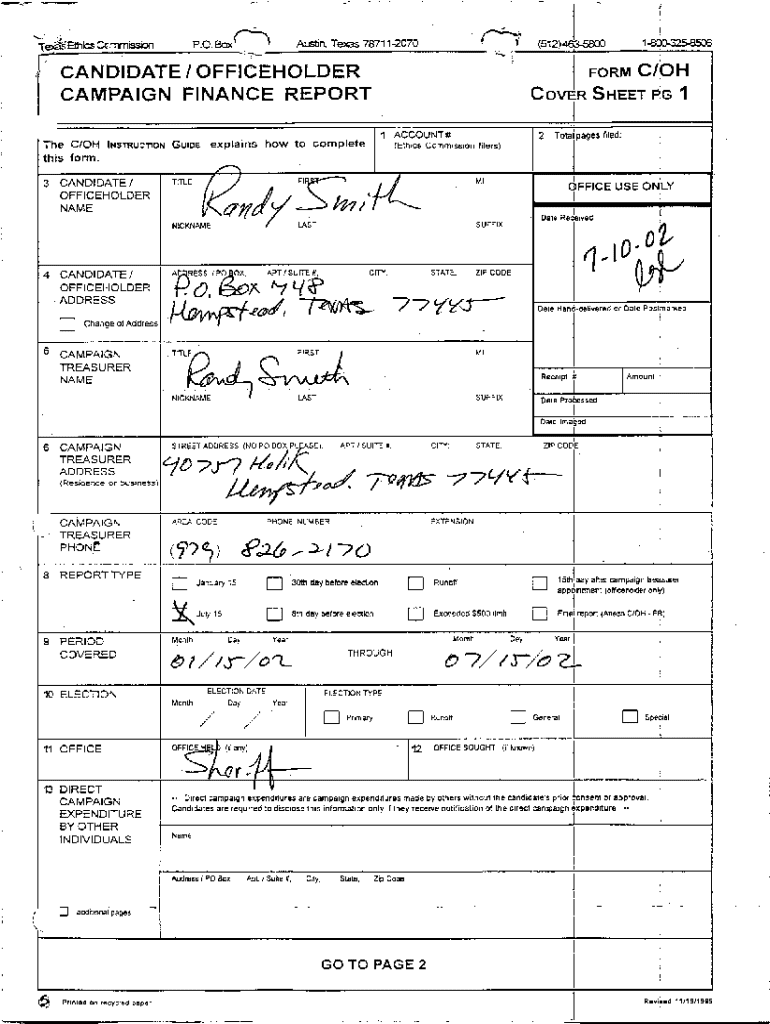 Texas Ethics Commission P.O. Box Austin, Texas 78711-2070 (512)463-5800 1-800-325-8506
CANDIDATE / OFFICEHOLDER
CAMPAIGN FINANCE REPORT
FORM C/OH
COVER SHEET PG 1
The C/OH INSTRUCTION GUIDE explains how to complete
this form.
1 ACCOUNT #
(Ethics Commission filers)
2 Total pages filed:
3 CANDIDATE /
OFFICEHOLDER
NAME
TITLE FIRST MI
Randy Smith
NICKNAME LAST SUFFIX
OFFICE USE ONLY
Date Received
7-10-02
4 CANDIDATE /
OFFICEHOLDER
ADDRESS
Change of Address
ADDRESS / PO BOX; APT / SUITE #; CITY; STATE; ZIP CODE
P.O. Box 748
Hempstead, Texas 77445
Date Hand-delivered or Date Postmarked
5 CAMPAIGN
TREASURER
NAME
TITLE FIRST MI
Randy Smith
NICKNAME LAST SUFFIX
Receipt # Amount
Date Processed
Date Imaged
6 CAMPAIGN
TREASURER
ADDRESS
(Residence or business)
STREET ADDRESS (NO PO BOX PLEASE); APT / SUITE #; CITY; STATE; ZIP CODE
40757 Helik
Hempstead, Texas 77445
CAMPAIGN
TREASURER
PHONE
AREA CODE PHONE NUMBER EXTENSION
(979) 826-2170
8 REPORT TYPE
January 15 30th day before election Runoff 15th day after campaign treasurer
appointment (officeholder only)
X July 15 8th day before election Exceeded $500 limit Final report (Attach C/OH - FR)
9 PERIOD
COVERED
Month Day Year
01/15/02
THROUGH
Month Day Year
07/15/02
10 ELECTION
ELECTION DATE
Month Day Year
/ /
ELECTION TYPE
Primary Runoff General Special
11 OFFICE
OFFICE HELD (if any)
Sheriff
12 OFFICE SOUGHT (if known)
13 DIRECT
CAMPAIGN
EXPENDITURE
BY OTHER
INDIVIDUALS
additional pages
•• Direct campaign expenditures are campaign expenditures made by others without the candidate's prior consent or approval.
Candidates are required to disclose this information only if they receive notification of the direct campaign expenditure. ••
Name
Address / PO Box; Apt. / Suite #; City; State; Zip Code
GO TO PAGE 2
Printed on recycled paper
Revised 11/15/1995